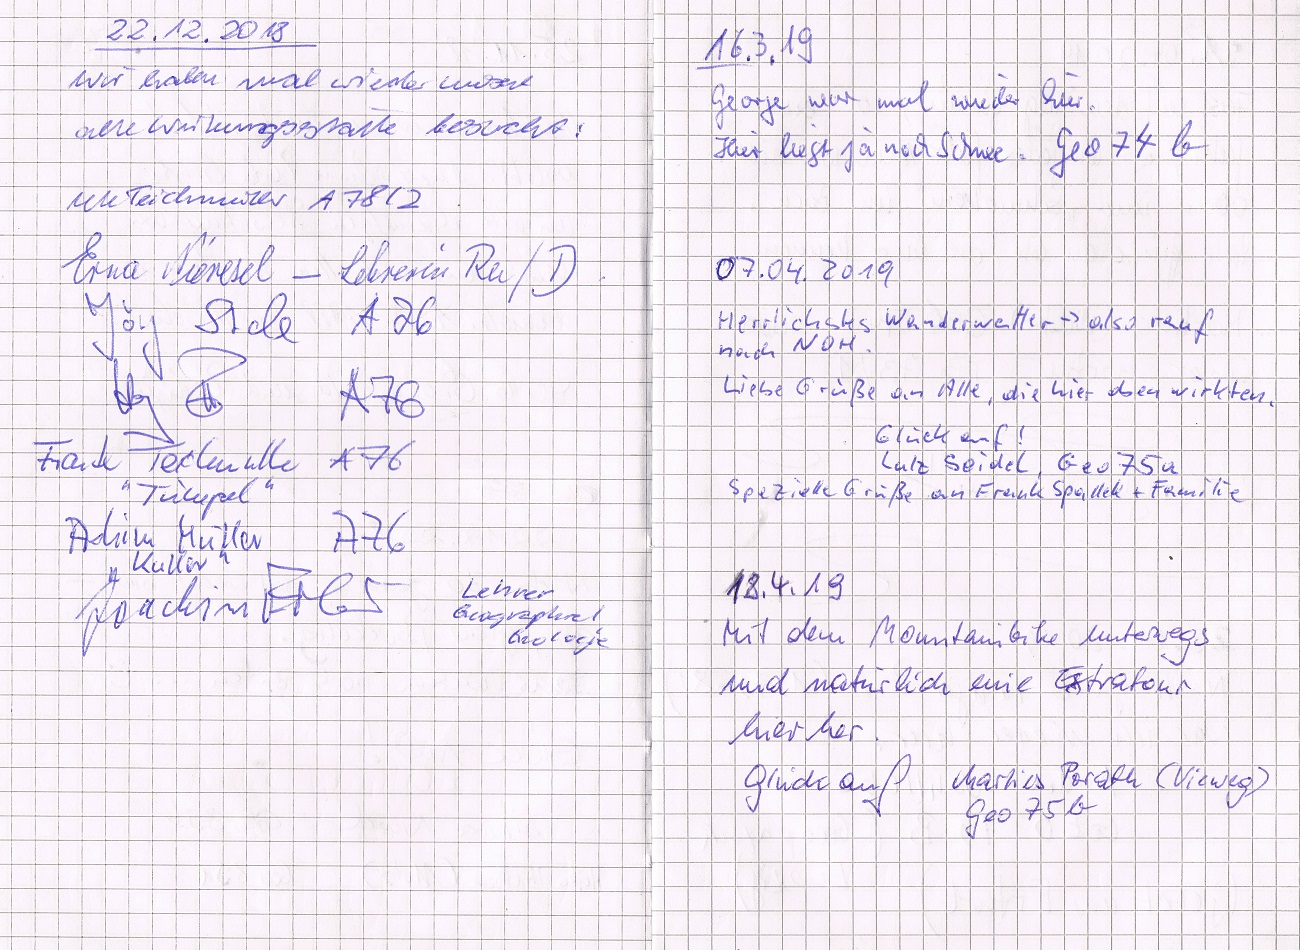 22.12.2018
Wir haben mal wieder unsere
alte Wirkungsstätte besucht:
Teichmüller A 78/2
Erna – Lehrerin Ru/D
A 76
A76
Frank A76
"Tümpel"
Achim Müller A76
"Kuller"
Joachim
Lehrer
Geographie/
Geologie
16.3.19
George war mal wieder hier.
Hier liegt ja noch Schnee. Geo 74 b
07.04.2019
Herrlichstes Wanderwetter → also rauf
nach NOH.
Liebe Grüße an Alle, die hier oben wirkten.
Glück auf!
Lutz Seidel, Geo 75a
Spezielle Grüße an Frank Spallek + Familie
18.4.19
Mit dem Mountainbike unterwegs
und natürlich eine Extratour
hier her.
Glück auf Porath (Vieweg)
Geo 75 b